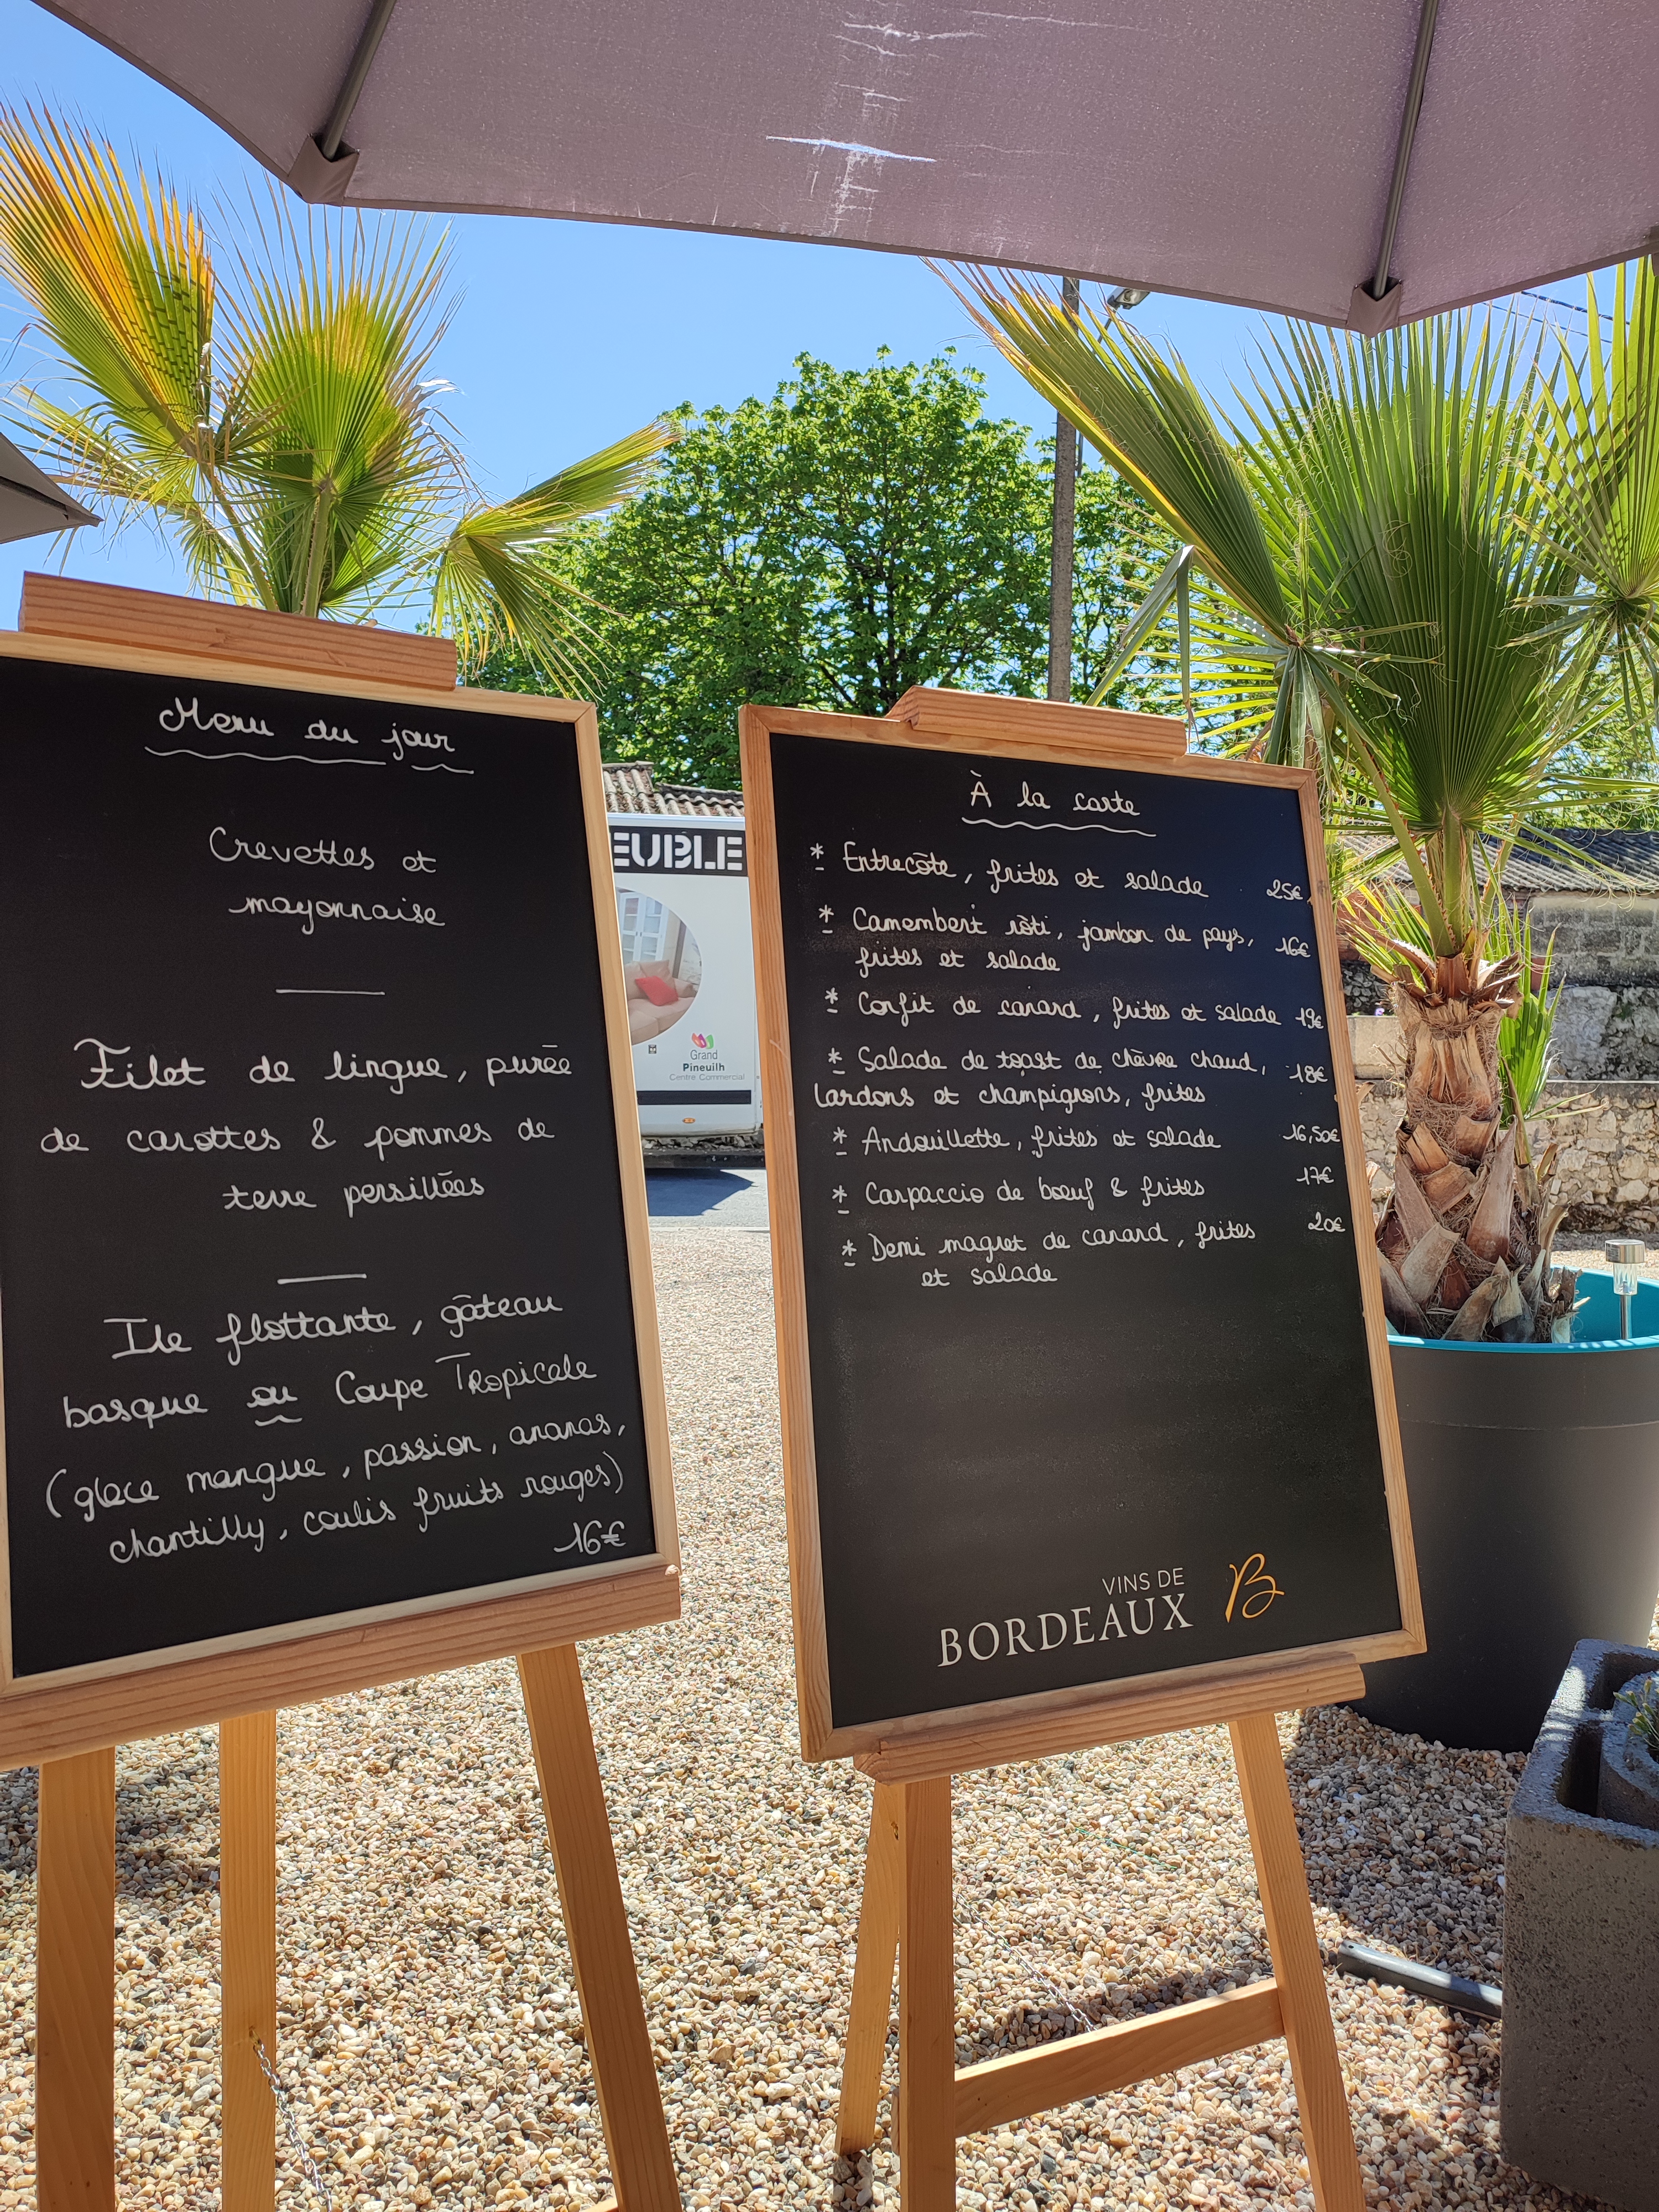 Menu du jour
Crevettes et
mayonnaise
Filet de lingue, purée
de carottes & pommes de
terre persillées
Ile flottante, gâteau
basque ou Coupe Tropicale
(glace mangue, passion, ananas,
chantilly, coulis fruits rouges)
16€
EUBLE
Grand
Pineuilh
Centre Commercial
À la carte
* Entrecôte, frites et salade 25€
* Camembert rôti, jambon de pays, 16€
frites et salade
* Confit de canard, frites et salade 19€
* Salade de toast de chèvre chaud, 18€
lardons et champignons, frites
* Andouillette, frites et salade 16,50€
* Carpaccio de boeuf & frites 17€
* Demi magret de canard, frites 20€
et salade
VINS DE
BORDEAUX B